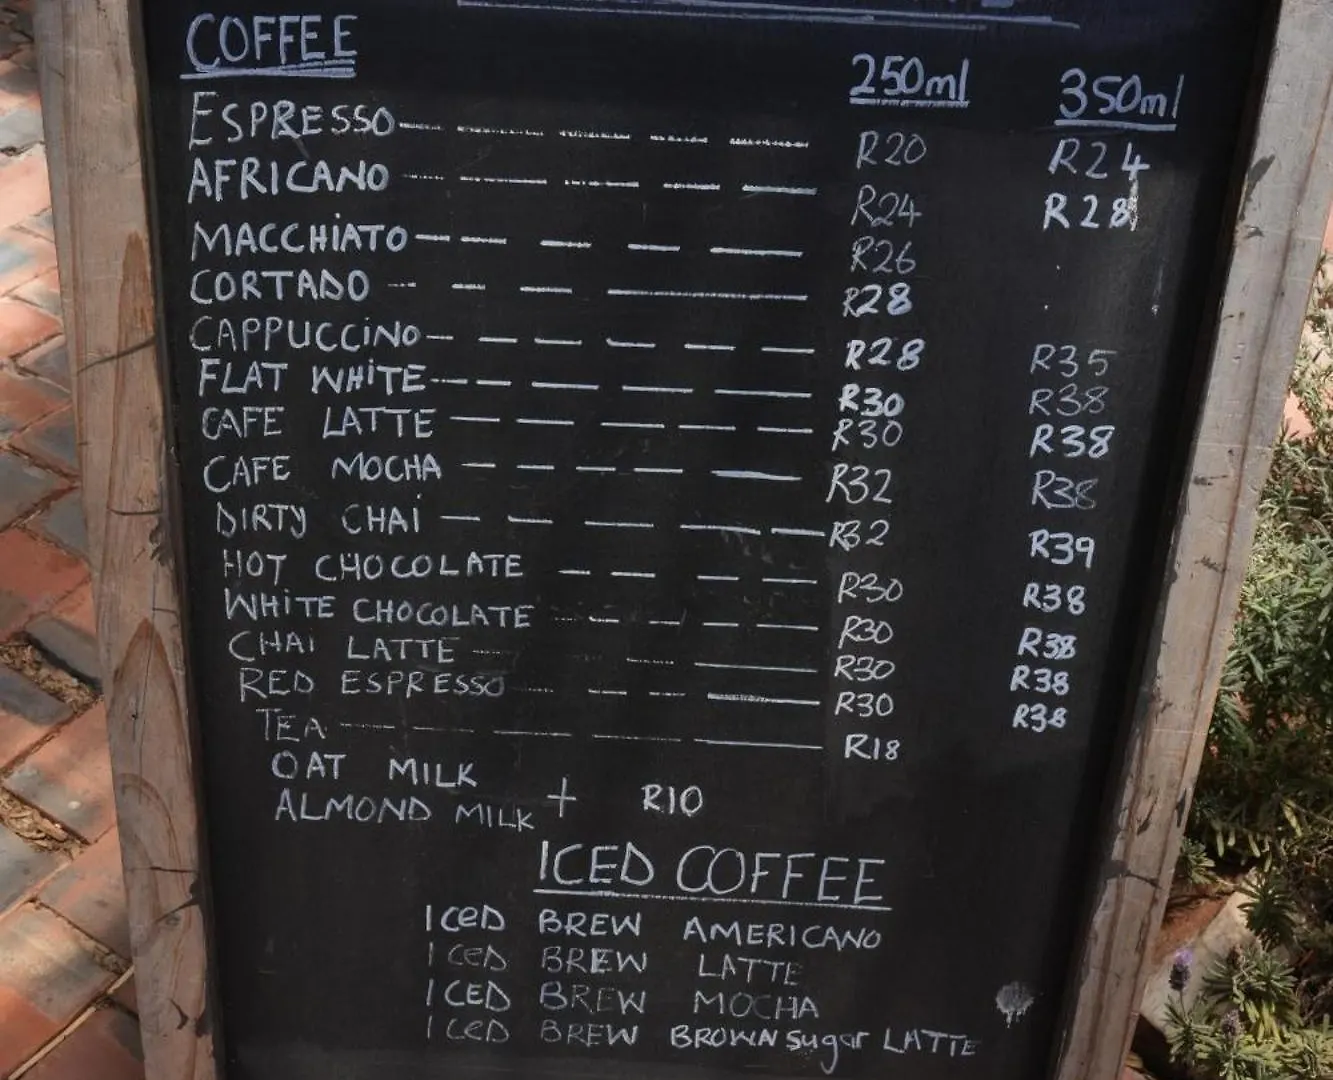 COFFEE 250ml 350ml
ESPRESSO R20 R24
AFRICANO R24 R28
MACCHIATO R26
CORTADO R28
CAPPUCCINO R28 R35
FLAT WHITE R30 R38
CAFE LATTE R30 R38
CAFE MOCHA R32 R38
DIRTY CHAI R32 R39
HOT CHOCOLATE R30 R38
WHITE CHOCOLATE R30 R38
CHAI LATTE R30 R38
RED ESPRESSO R30 R38
TEA R18
OAT MILK
ALMOND MILK + R10
ICED COFFEE
ICED BREW AMERICANO
ICED BREW LATTE
ICED BREW MOCHA
ICED BREW BROWN Sugar LATTE